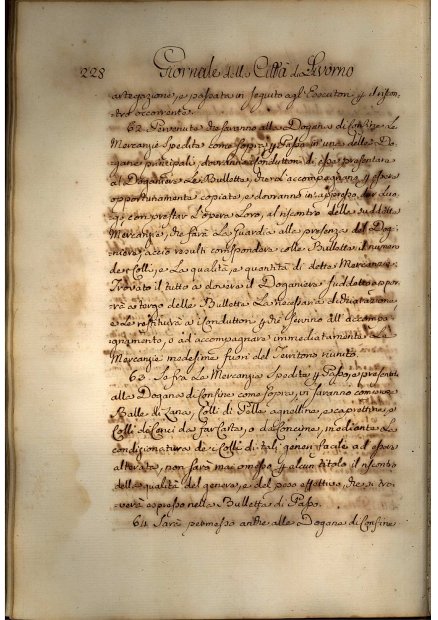 228 Giornale della Città di Livorno
artegazione, e passata in seguito agl'Esecutori p il riscon-
tro occorrente.
62. Pervenute che saranno alla Dogana di Confine Le
Mercanzie Spedite come sopra p Passo in una delle Do-
gane principali, dovranno i Conduttori di esse presentare
al Doganiere Le Bullette, che L'accompagnano p essere
opportunamente copiate, e dovranno in appresso dar Luo-
go, con prestar L'opera Loro, al riscontro delle suddette
Mercanzie, che farà La Guardia alla presenza del Dog-
niere, acciò resulti corrispondere colle Bullette il numero
de Colli, e La qualità, e quantità di dette Mercanzie.
Trovato il tutto a dovere il Doganiere suddetto appor-
rà a tergo delle Bullette La necessaria dichiarazione,
e Le restituirà a i Conduttori p che servino all'accompa-
gnamento, o ad accompagnare immediatamente Le
Mercanzie medesime fuori del Territorio riunito.
63. Se fra Le Mercanzie Spedite p Passo, e presentate
alla Dogana di Confine come Sopra, vi saranno comprese
Balle di Lana, Colli di Pelle agnellina, e caprettina, e
Colli de Cenci da far Carta, o da Concime, mediante La
condizionatura de Colli di tali generi facile ad essere
alterata, non sarà mai omesso p alcun titolo il riscontro
della qualità del genere, e del peso effettivo, che si tro-
verà espresso nelle Bullette di Passo.
64. Sarà permesso anche alle Dogane di Confine